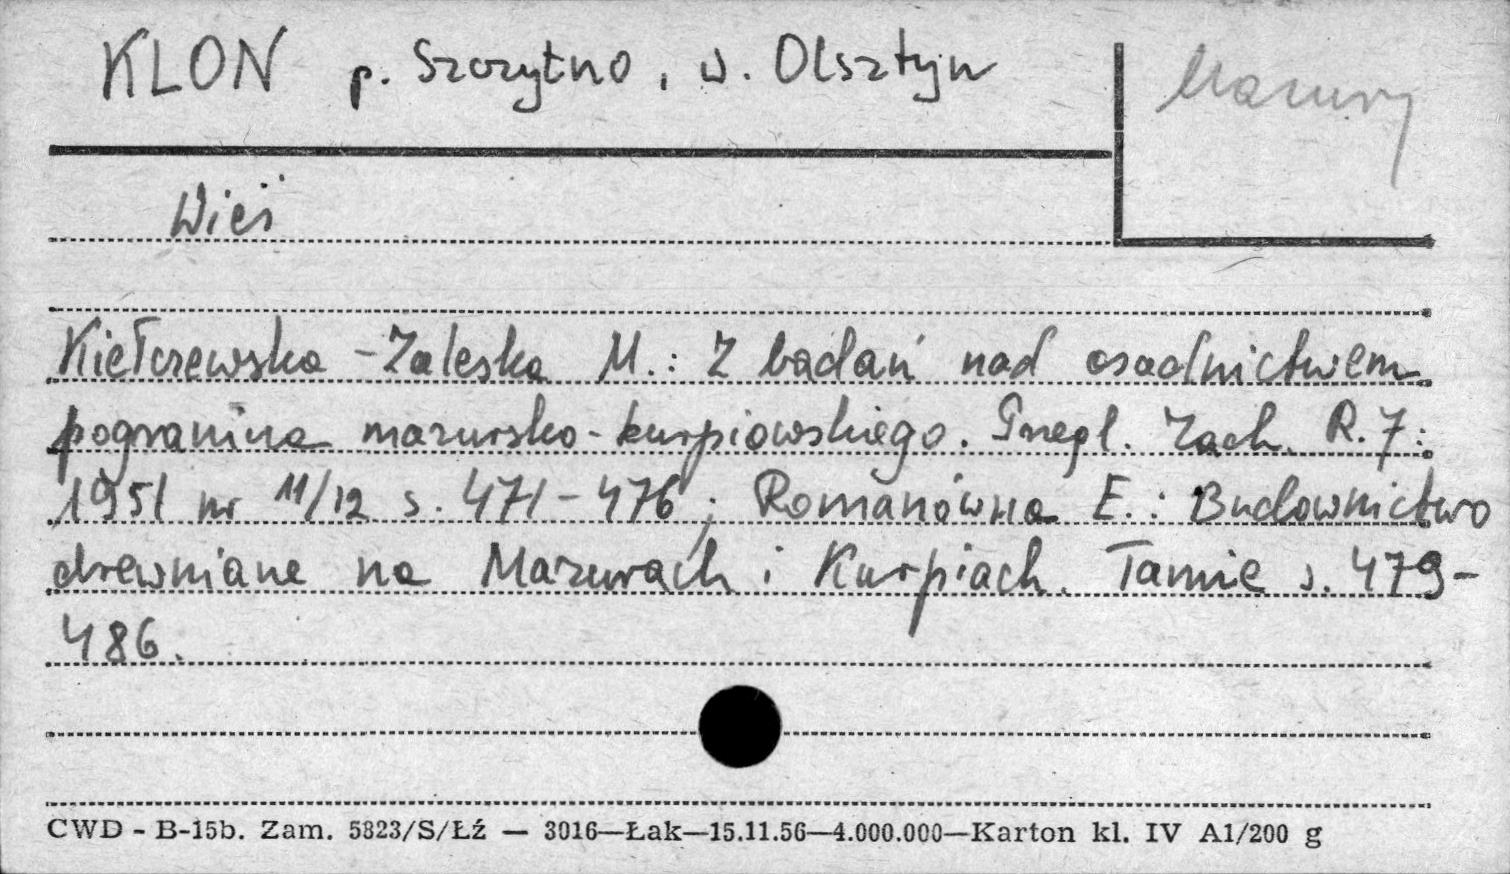 KLON p. Szczytno, w. Olsztyn
Mazury
Wieś
Kiełczewska - Zaleska M.: Z badań nad osadnictwem
pogranicza mazursko-kurpiowskiego. Przegl. Zach. R. 7:
1951 nr 11/12 s. 471-476; Romanówna E.: Budownictwo
drewniane na Mazurach i Kurpiach. Tamże s. 479-
486.
CWD - B-15b. Zam. 5823/S/Łź — 3016—Łak—15.11.56—4.000.000—Karton kl. IV A1/200 g